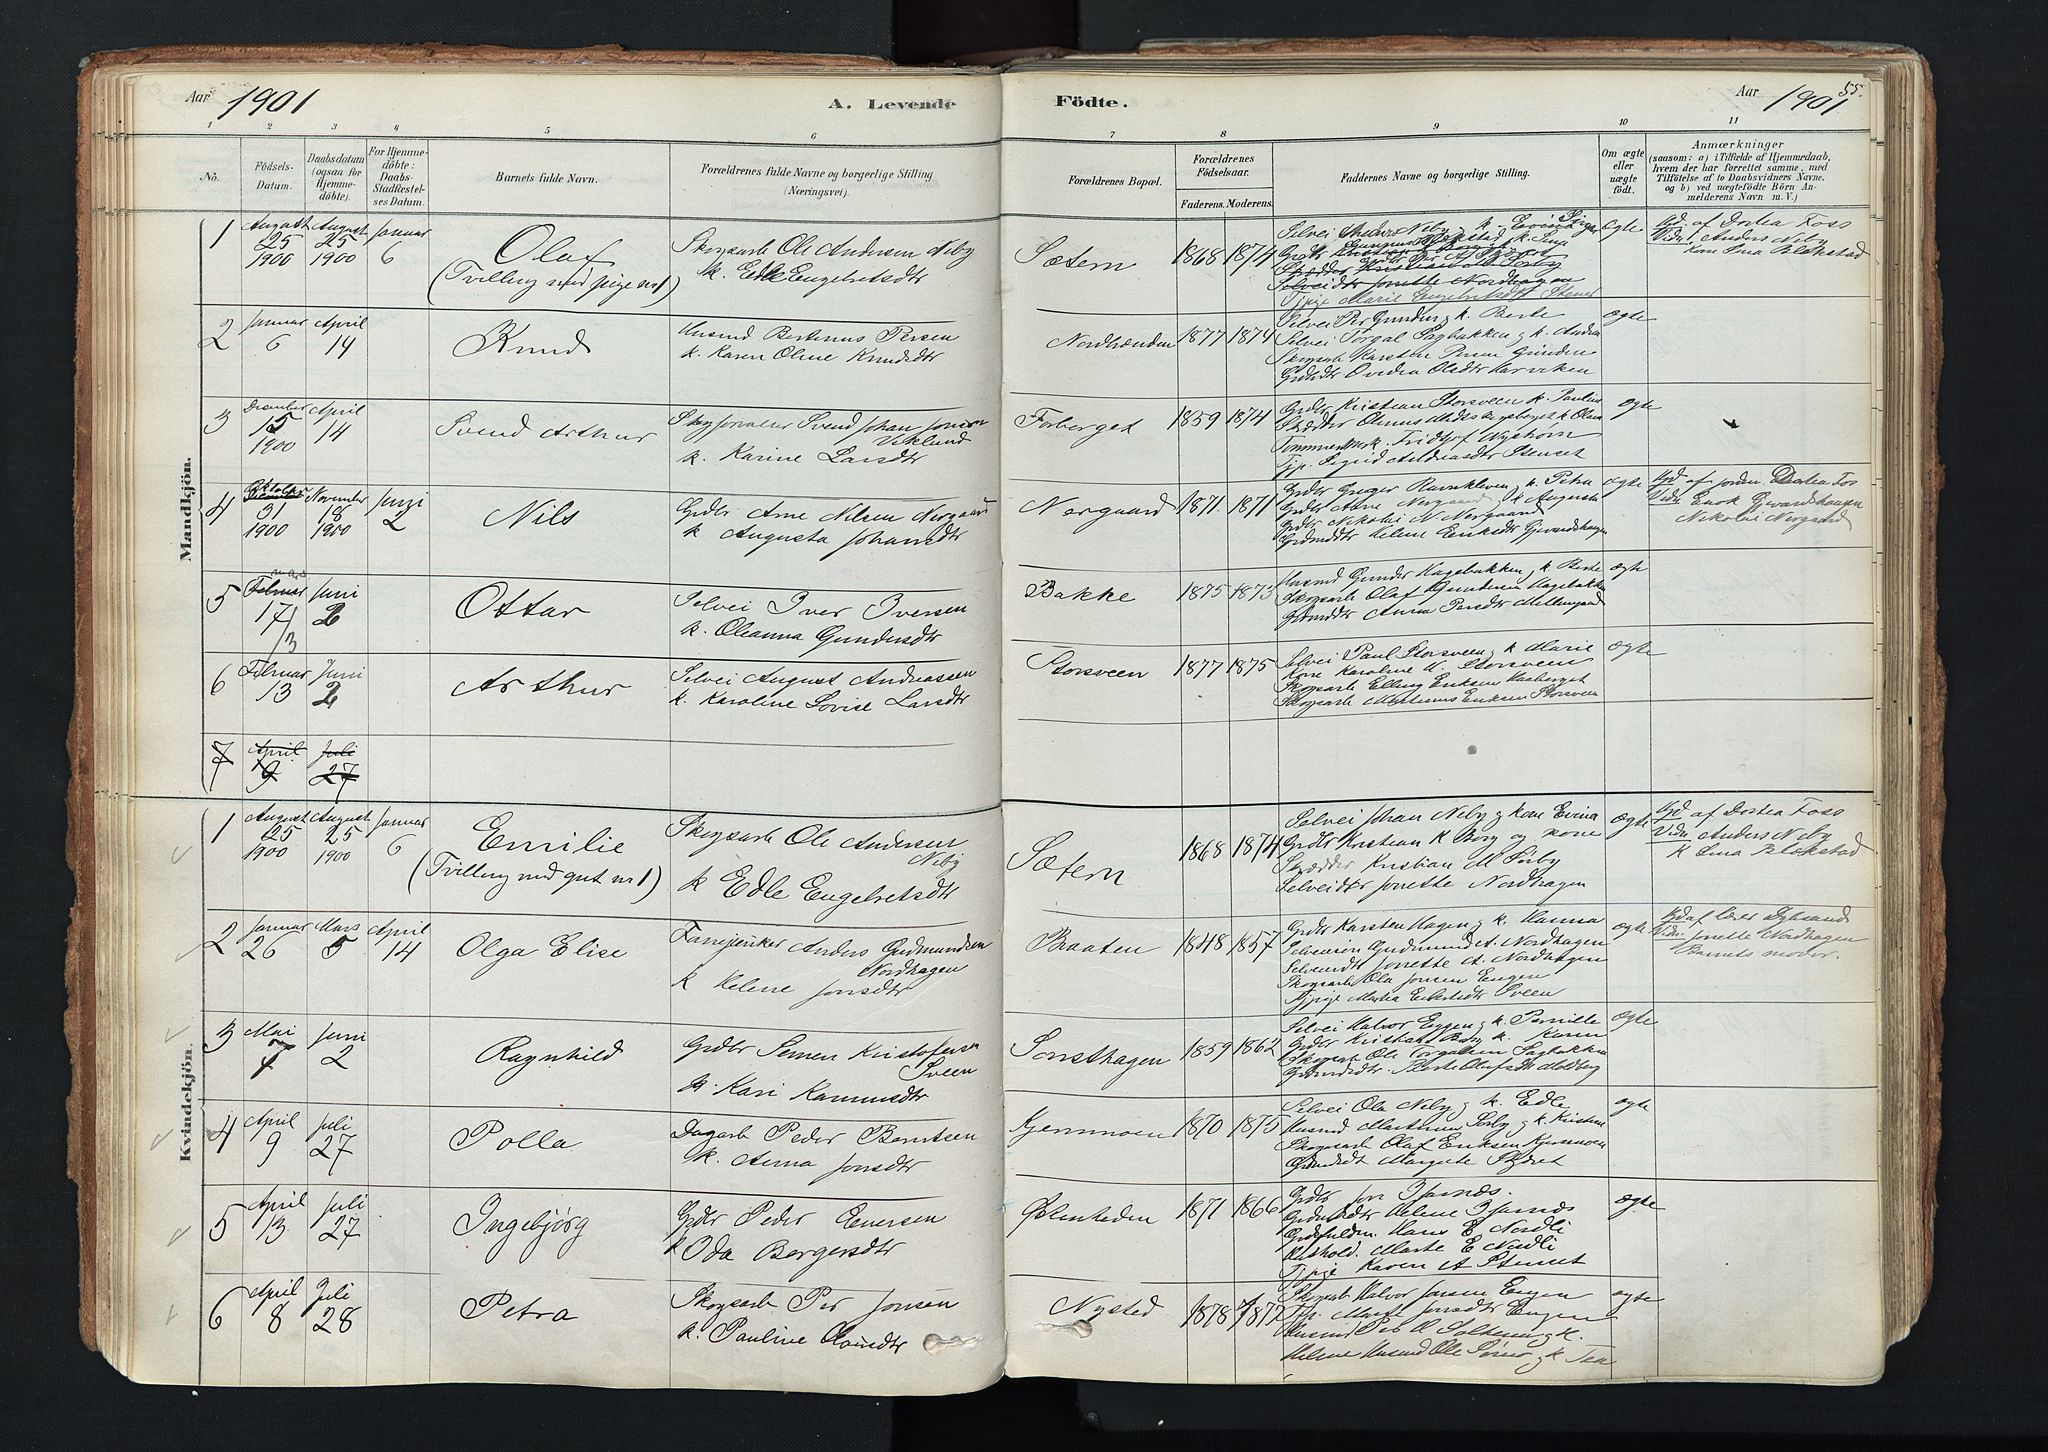 Aar 1901
A. Levende Födte.
Aar 1901
55.
1 2 3 4 5 6 7 8 9 10 11
No.
Födsels-Datum.
Daabsdatum (ogsaa for Hjemmedöbte).
For Hjemmedöbte: Daabs-Stadfestelses Datum.
Barnets fulde Navn.
Forældrenes fulde Navne og borgerlige Stilling (Næringsvei).
Forældrenes Bopæl.
Forældrenes Födselsaar.
Faderens. Moderens.
Faddernes Navne og borgerlige Stilling.
Om ægte eller uægte födt.
Anmærkninger
(saasom: a) i Tilfælde af Hjemmedaab, hvem der har forrettet samme, med Tilföielse af to Daabsvidners Navne, og b) ved uægtefödte Börn Anmelderens Navn m. V.)
Mandkjön.
1 August 25 1900 August 25 1900 Januar 6
Olaf
(Tvilling med pige nr 1)
Skogsarb Ole Andersen Neby
k. Edle Engelretsdtr
Sætern 1868 1874
Tjpige Marie Engelretsdtr
ægte
Hjd af Dortea Foss
Vidn. Anders Neby
Kone Lina Blekstad
2 Januar 6 April 14
Knud
Husmd Bertinus Persen
k. Karen Oline Knudsdtr
Nordlænden 1877 1874
Selvei Per Gunder k. Berte
Selvei Torgal Sagbakken k. Andrea
Skogsarb Karsten Persen
Ovedia Olsdtr
ægte
3 December 15 1900 April 14
Svend Arthur
Skogforvalter Svend Johan Jonson Viklund
k. Karine Larsdtr
Forberget 1859 1874
Grdbr Kristian Storsveen k. Pauline
Tømmermrk. Fridtjof Nyhörn
Tjp. Sigrid Andreasdtr Stenset
ægte
4 Oktober 31 1900 November 18 1900 Juni 2
Nils
Grdbr Arne Nilsen Nergaard
k Augusta Johansdtr
Nergaard 1871 1871
Grdbr Greger Ravnkleven k. Petra
Grdbr Arne Nergaard k Augusta
Grdbr Nikolai N. Nergaard
Helene Eriksdtr Gjevardshaugen
ægte
Hjd af Jordem Dortea Foss
Vidn. Enok Gjevardshaugen
Nikolai Nergaard
5 Februar Mars 17/3 Juni 2
Ottar
Selvei Iver Iversen
k. Oleanna Gundersdtr
Bakke 1875 1873
Husmd Gunder Hagebakken k. Berte
Skogsarb Olaf Gundersen Hagebakken
Anna Persdtr Mellemgaard
ægte
6 Februar 13 Juni 2
Arthur
Selvei August Andreassen
k. Karoline Lovise Larsdtr
Storsveen 1877 1875
Selvei Paul Storsveen k Marie
Kone Karoline M. Storsveen
Skogsarb Elling Eriksen Haaberget
Skogsarb Martinus Eriksen Storsveen
ægte
7 April 9 Juli 27
Kvindekjön.
1 August 25 1900 August 25 1900 Januar 6
Emilie
(Tvilling med gut nr 1)
Skogsarb Ole Andersen Neby
k Edle Engelretsdtr
Sætern 1868 1874
Selvei Johan Neby kone Evina
Grdbr Kristian K Borg og kone
Skrædder Kristian M Sörby
Selveidtr Jonette Nordhagen
ægte
Hjd af Dortea Foss
Vidn Anders Neby
K Lina Blekstad
2 Januar 26 Mars 5 April 14
Olga Elise
Anders Gudmundsen Nordhagen
k Helene Jonsdtr
Braaten 1848 1857
Grdbr Karsten Hagen k. Hanna
Selveiersön Gudmund A. Nordhagen
Selveierdt Jonette A. Nordhagen
Skogsarb Ola Jonsen Engen
ægte
Hjd af lærer Dybsand
Vidn Jonette Nordhagen
Barnets moder.
3 Mai 7 Juni 2
Ragnhild
Grdbr Semen Kristofersen Sveen
k. Kari Rasmusdtr
Sorsthagen 1859 1862
Selvei Halvor Eggen k. Pernille
Grdbr Kristian Borg k. Karen
Skogsarb Ole Torgalsen Sagbakken
Berte Olafsdtr Moldberg
ægte
4 April 9 Juli 27
Polla
Dagarb Peder Berntsen
k. Anna Jonsdtr
Kjernmoen 1870 1875
Selvei Ola Neby k. Edle
Husmd Martinus Sörby k. Kristine
Skogsarb Olaf Eriksen Kjernmoen
Margrete
ægte
5 April 13 Juli 27
Ingebjörg
Grdbr Peder Enersen
k Oda Borgersdtr
Ölenheden 1871 1866
Grdbr Jon Bjørnæs.
Helene Bjørnæs
Hans E Nordli
Marte E Nordli
Tjpige Karen A Stenset
ægte
6 April 8 Juli 28
Petra
Skogsarb Per Jonsen
k. Pauline
Nysted 1878 1877
Skogsarb Halvor Jonsen Engen
Tjp. Marte Jonsdtr Engen
ægte